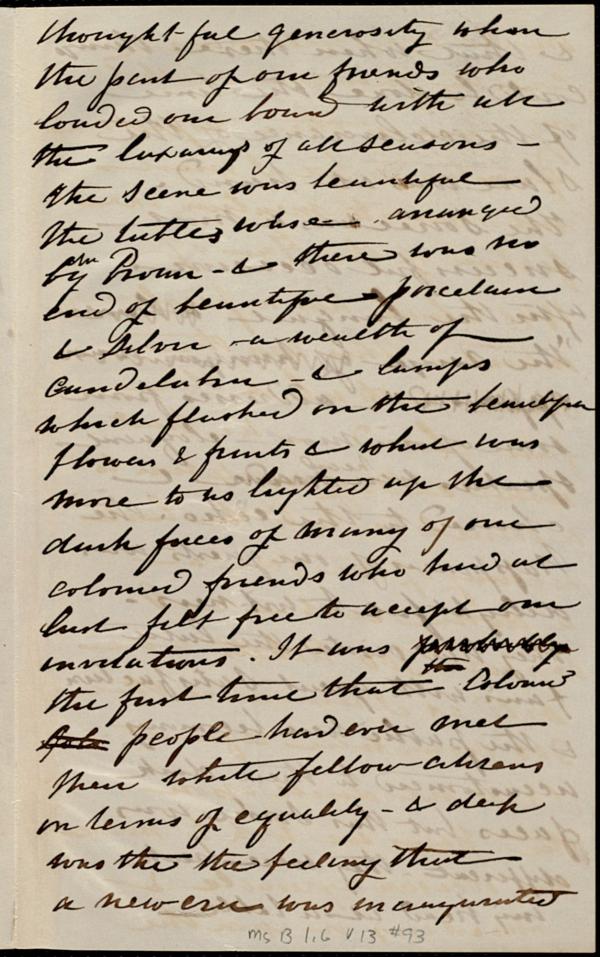 thoughtful generosity when
the part of our friends who
loaded our board with all
the luxuries of all seasons -
the scene was beautiful
the tables whose arranged
by Mr Prom - & there was no
end of beautiful porcelain
& Silver - a wealth of
candelabra - & lamps
which flashed on the beautiful
flowers & fruits & what was
more to us lighted up the
dark faces of many of our
colored friends who had at
last felt free to accept our
invitations. It was probably
the first time that the Colored
people had ever met
their white fellow-citizens
on terms of equality - & deep
was the the feeling that
a new era was inaugurated
Ms B 1.6 V 13 #93